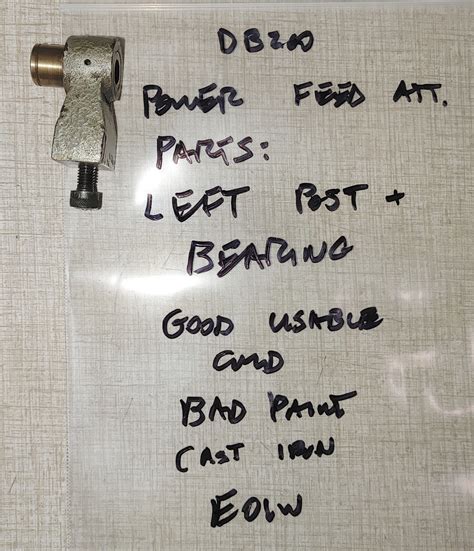 DB200
POWER FEED ATT.
PARTS:
LEFT POST +
BEARING
GOOD USABLE
CMD
BAD PAINT
CAST IRON
EOIW